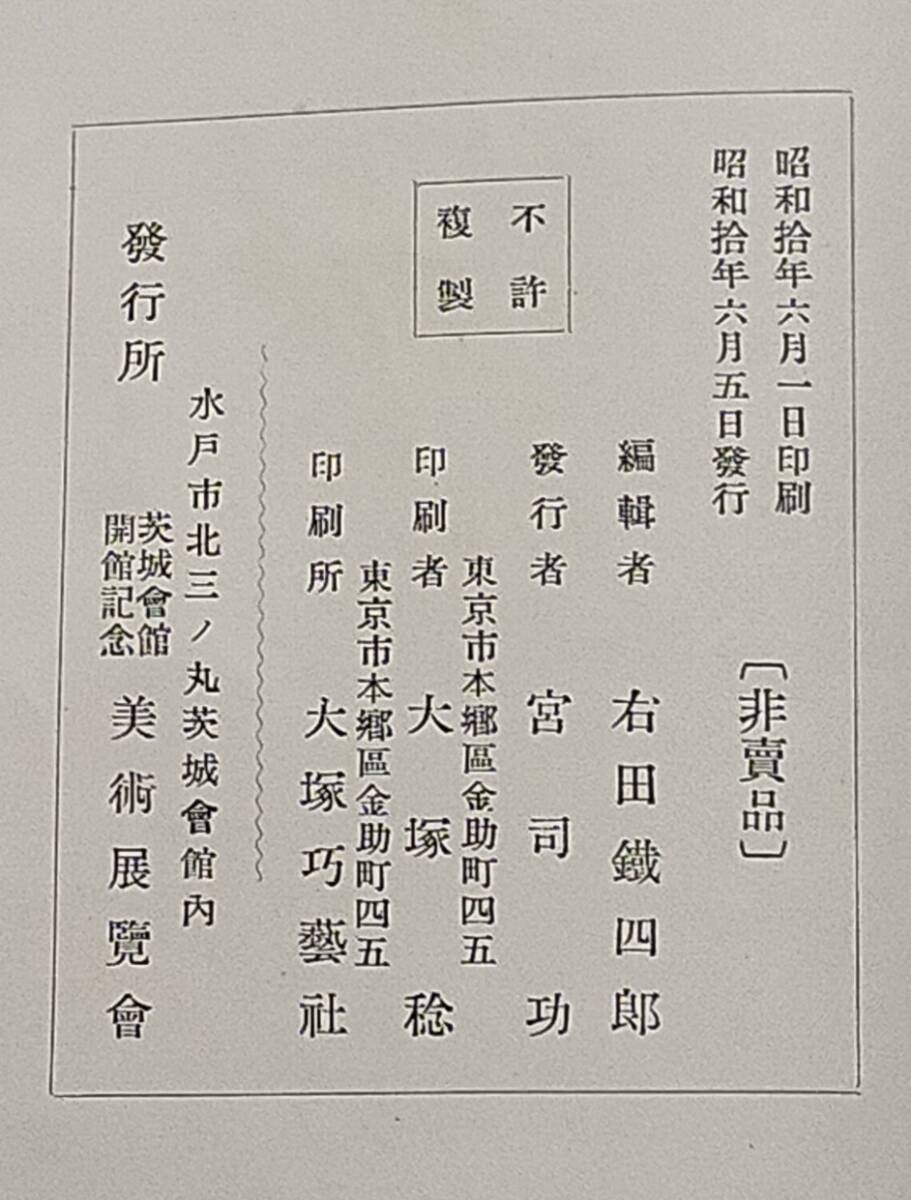 昭和拾年六月一日印刷
昭和拾年六月五日發行
〔非賣品〕
不許
複製
編輯者 右田鐵四郎
發行者 宮司功
東京市本鄕區金助町四五
印刷者 大塚稔
東京市本鄕區金助町四五
印刷所 大塚巧藝社
水戶市北三ノ丸茨城會館內
發行所
茨城會館
開館記念
美術展覽會